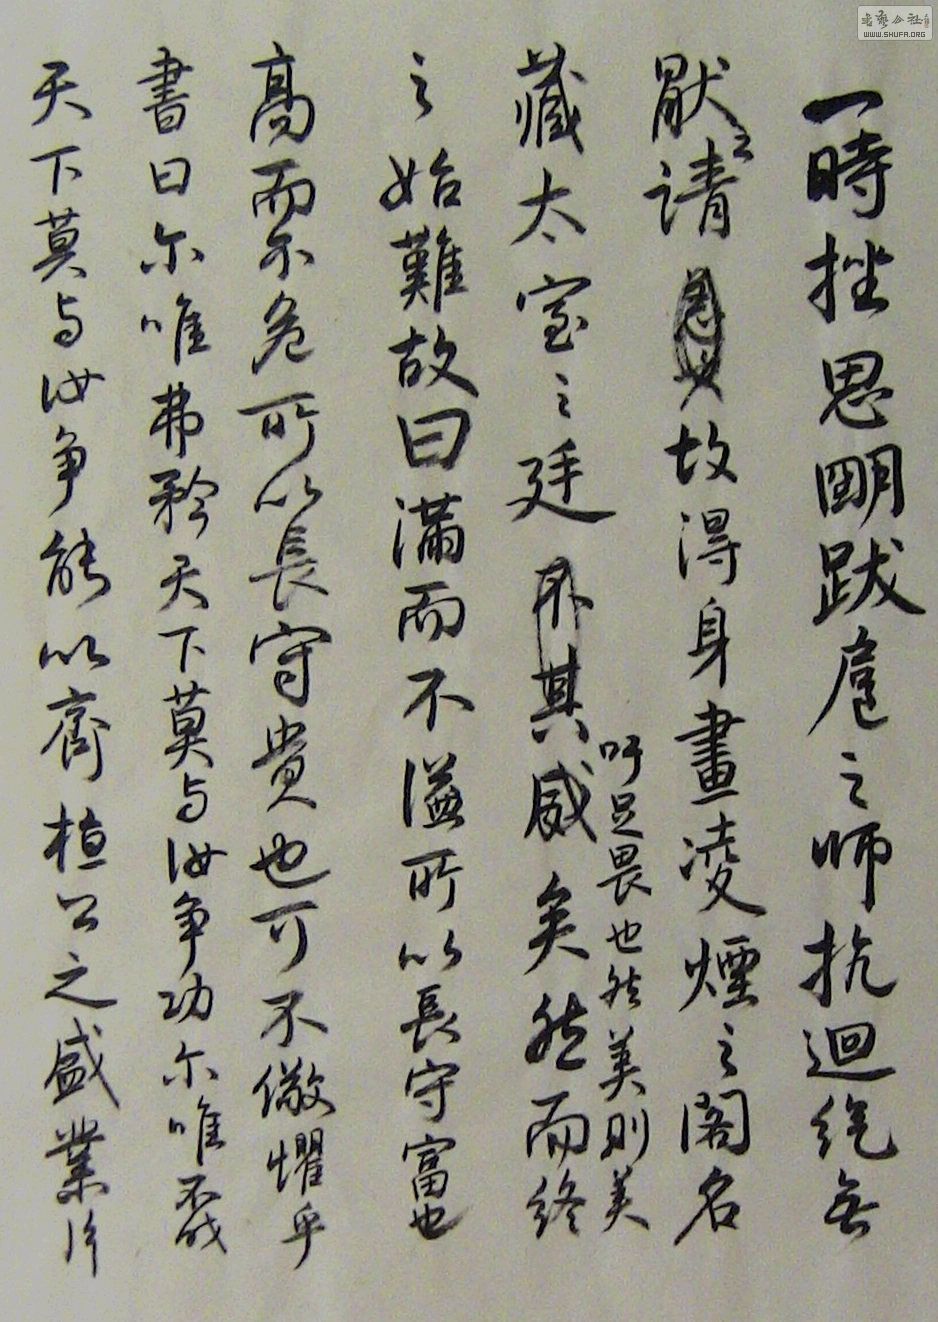 一時挫思明跋扈之師抗迴紇無
厭之請故得身畫凌煙之閣名
藏太室之廷吁足畏也然美則美
其威矣然而終
之始難故曰滿而不溢所以長守富也
高而不危所以長守貴也可不儆懼乎
書曰尔唯弗矜天下莫与汝争功尔唯不伐
天下莫与汝争能以齊桓公之盛業片
書藝公社
WWW.SHUFA.ORG